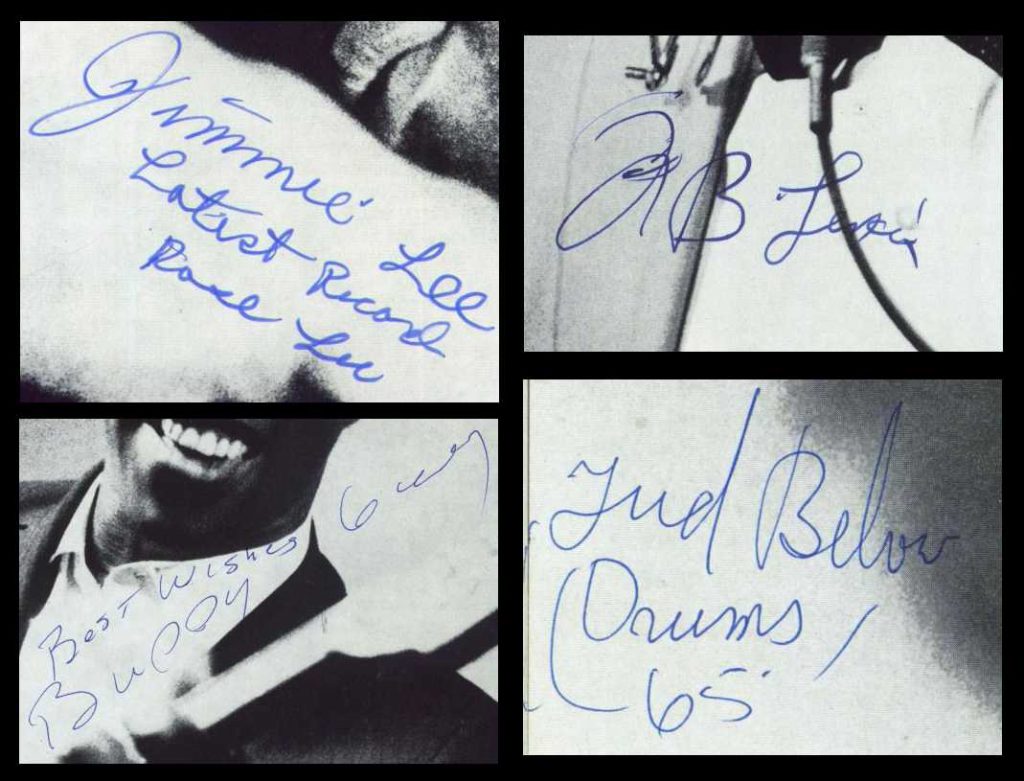 Jimmie Lee
Latest Record
Rose Lee
J B Lenoir
Best Wishes
Buddy Guy
Fred Below
(Drums)
65